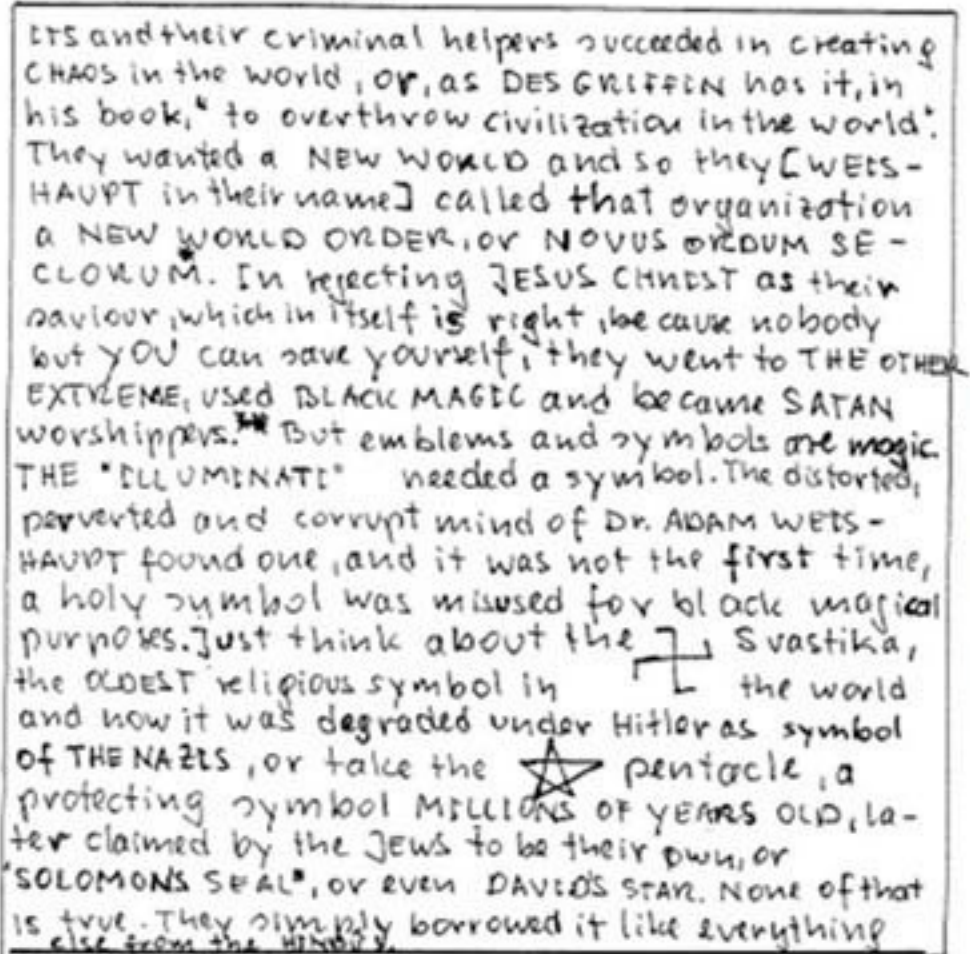 ITS and their criminal helpers succeeded in creating
CHAOS in the world, or, as DES GRIFFIN has it, in
his book, "to overthrow civilization in the world".
They wanted a NEW WORLD and so they [WEIS-
HAUPT in their name] called that organization
a NEW WORLD ORDER, or NOVUS ORDUM SE-
CLORUM. In rejecting JESUS CHRIST as their
saviour, which in itself is right, because nobody
but YOU can save yourself, they went to THE OTHER
EXTREME, used BLACK MAGIC and became SATAN
worshippers. But emblems and symbols are magic.
THE "ILLUMINATI" needed a symbol. The distorted,
perverted and corrupt mind of Dr. ADAM WEIS-
HAUPT found one, and it was not the first time,
a holy symbol was misused for black magical
purposes. Just think about the Svastika,
the OLDEST religious symbol in the world
and now it was degraded under Hitler as symbol
of THE NAZIS, or take the pentacle, a
protecting symbol MILLIONS OF YEARS OLD, la-
ter claimed by the JEWS to be their own, or
"SOLOMON'S SEAL", or even DAVID'S STAR. None of that
is true. They simply borrowed it like everything
else from the HINDUS.